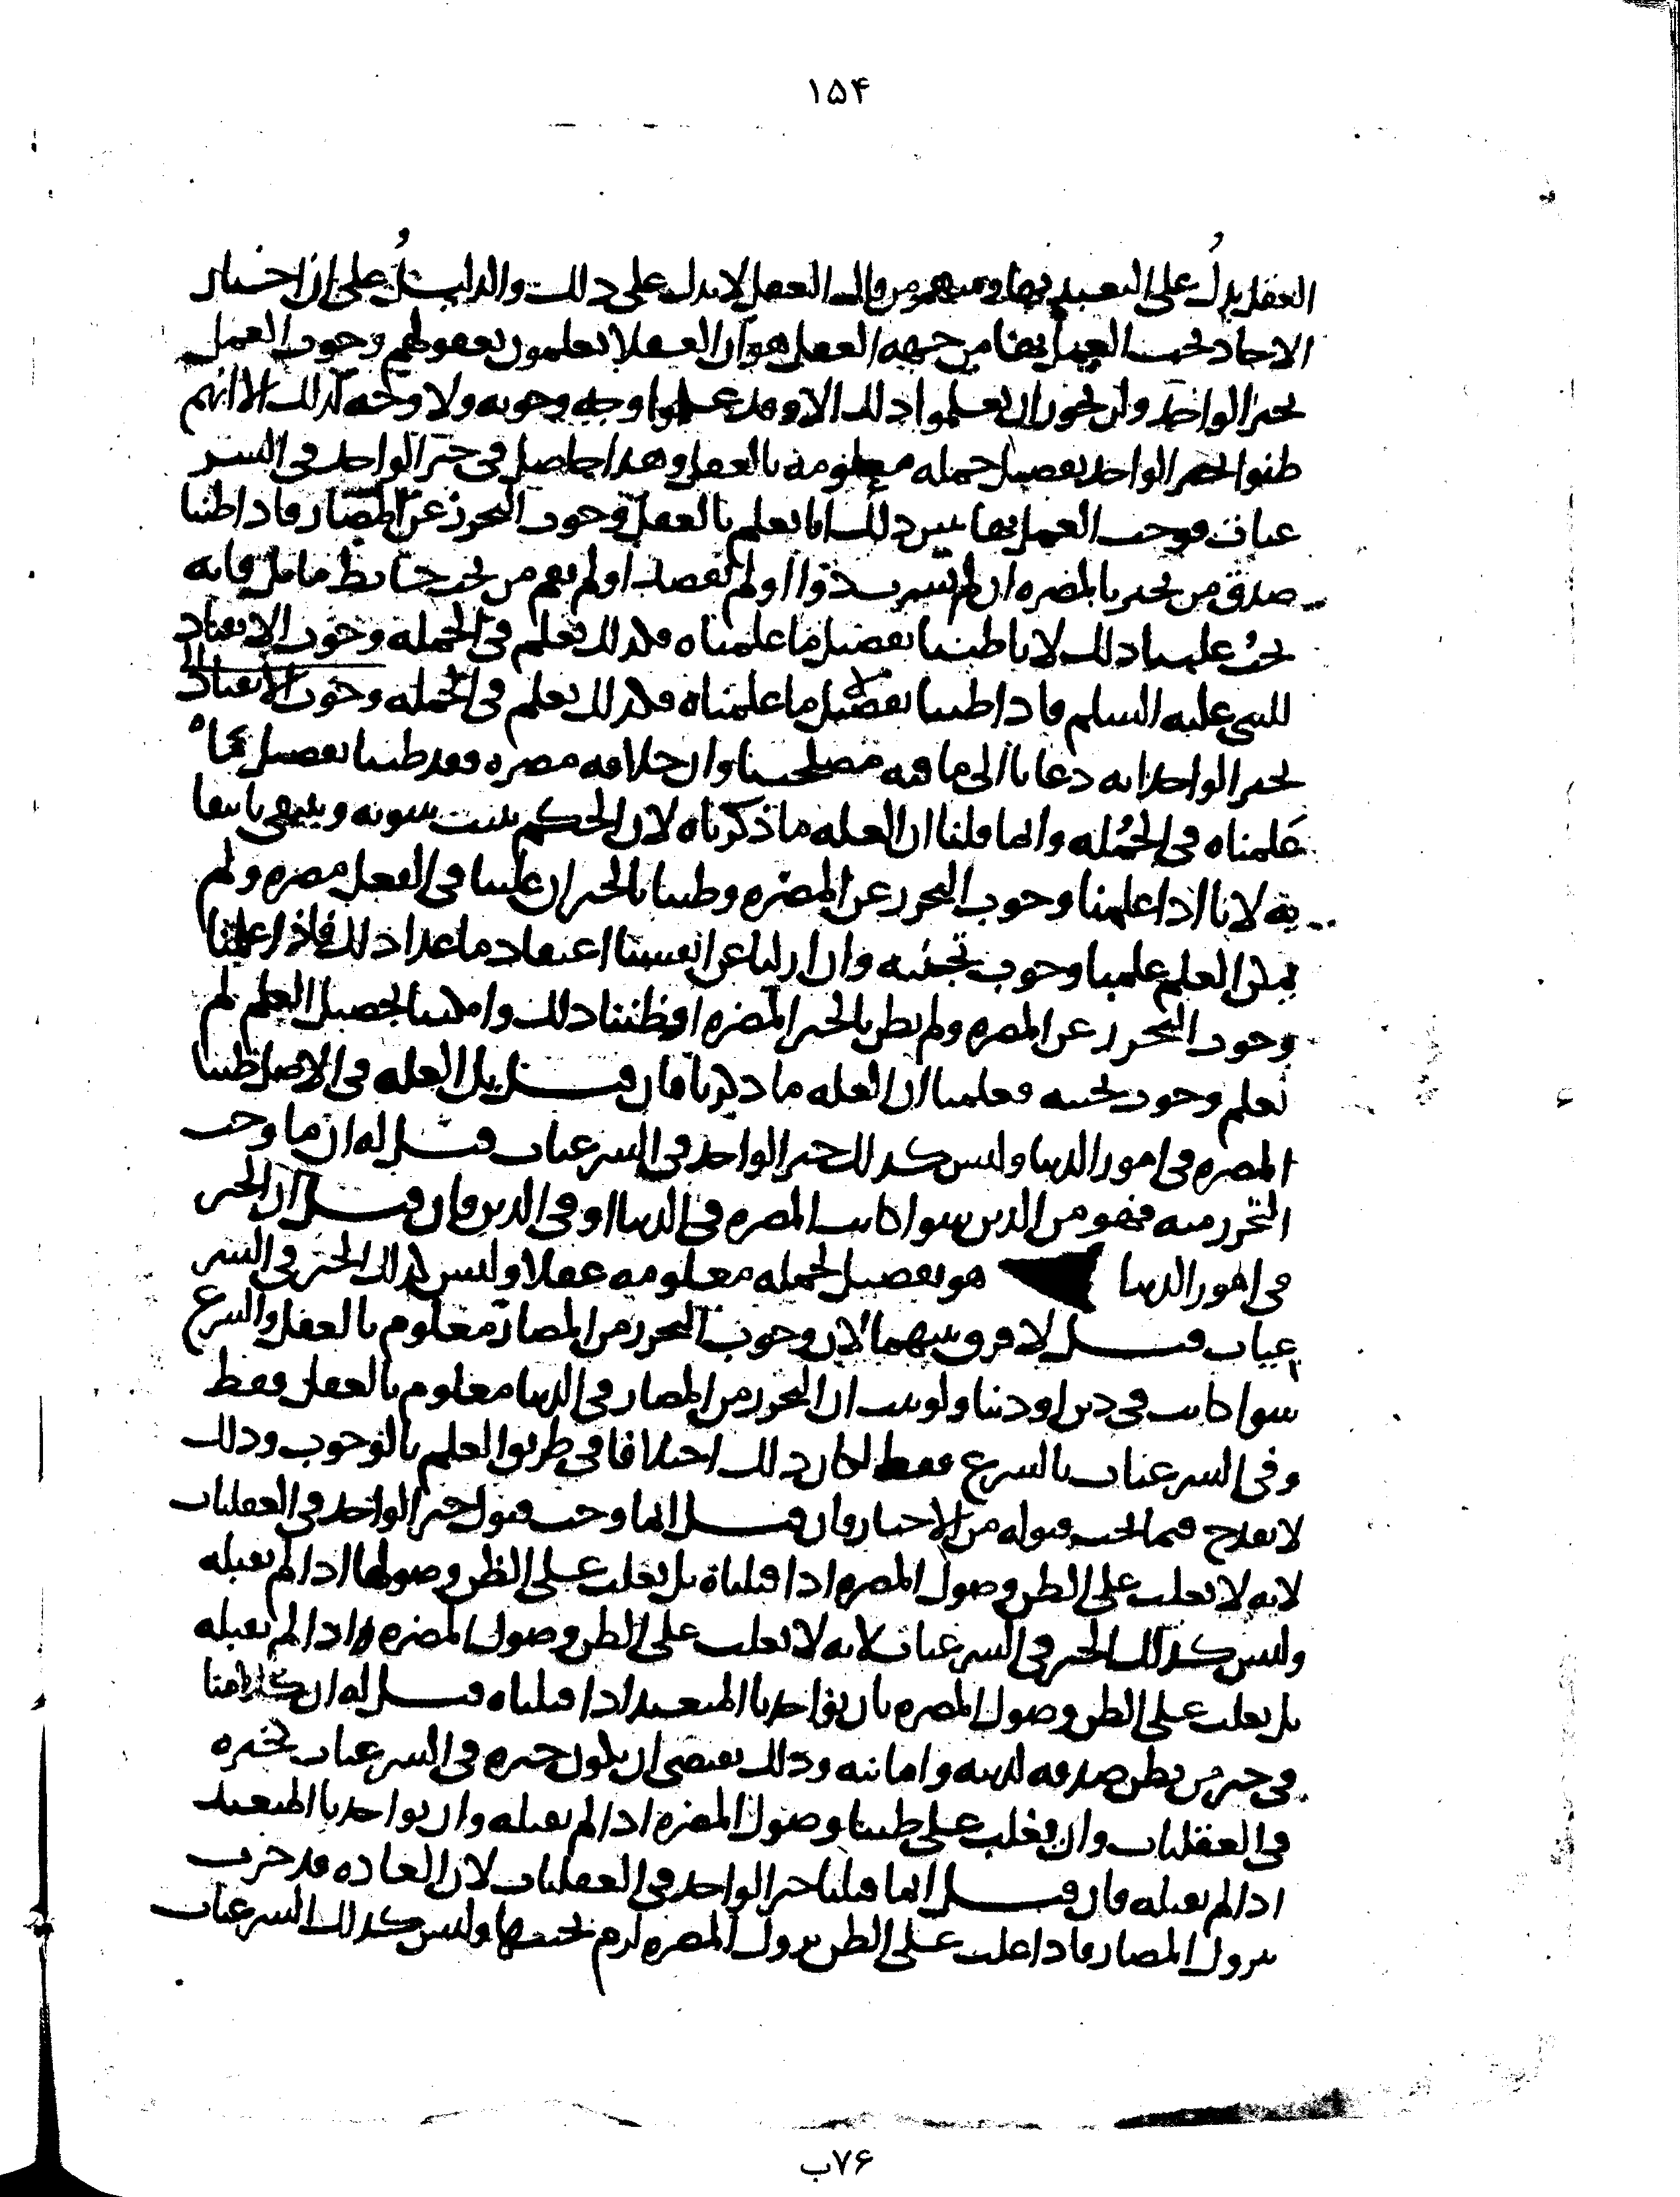 ١٥٤
العقل يدل على التعبد بها ومنهم من قال العقل لا يدل على ذلك والدليل على ان اخبار
الاحاد يجب العمل بها من جهه العقل هو ان العقلا يعلمون بعقولهم وجوب العمل
بخبر الواحد ولن يجوز ان يعلموا ذلك الا وقد علموا وجه وجوبه ولا وجه لذلك الا انهم
ظنوا بخبر الواحد تفصيل جمله معلومه بالعقل وهذا حاصل في خبر الواحد في الشر
عيات فوجب العمل بها يبين ذلك انا نعلم بالعقل وجوب التحرز عن المضار فاذا ظننا
صدق من يخبر بالمضره ان لم نشرب دوا او لم نفصد او لم نقم من تحت حايط مايل فانه
يجب علينا ذلك لانا ظننا تفصيل ما علمناه فكذلك نعلم في الجمله وجوب الانقياد
للنبي عليه السلم فاذا ظننا تفصيل ما علمناه فكذلك نعلم في الجمله وجوب الانقياد الى
بخبر الواحد انه دعانا الى ما فيه مصلحتنا وان خلافه مضره فقد ظننا تفصيل ما
علمناه في الجمله وانما قلنا ان العله ما ذكرناه لان الحكم يثبت بثبوته وينتفي بانتفا
يه لانا اذا علمنا وجوب التحرز عن المضره وظننا بالخبر ان علينا في الفعل مضره ولم
يمكن العلم علمنا وجوب تجنبه وان ازلنا عن انفسنا اعتقاد ما عدا ذلك فاذا علمنا
وجوب التحرز عن المضره ولم نظن بالخبر المضره او ظننا ذلك وامكننا تحصيل العلم لم
نعلم وجوب تجنبه فعلمنا ان العله ما ذكرنا فان قيل بل العله في الاصل ظننا
المضره في امور الدنيا وليس كذلك خبر الواحد في الشرعيات قيل له ان ما وجب
التحرز منه فهو من الدين سوا كانت المضره في الدنيا او في الدين فان قيل ان الخبر
في امور الدنيا هو تفصيل لجمله معلومه عقلا وليس كذلك الخبر في الشر
عيات قيل لا فرق بينهما لان وجوب التحرز من المضار معلوم بالعقل والشرع
سوا كانت في دين او دنيا ولو ثبت ان التحرز من المضار في الدنيا معلوم بالعقل فقط
وفي الشرعيات بالشرع فقط لكان ذلك اختلافا في طريق العلم بالوجوب وذلك
لا يقدح فيما يجب قبوله من الاخبار فان قيل انما وجب قبول خبر الواحد في العقليات
لانه لا يغلب على الظن وصول المضره اذا قبلناه بل يغلب على الظن وصولها اذا لم نقبله
وليس كذلك الخبر في الشرعيات لانه لا يغلب على الظن وصول المضره اذا لم نقبله
بل يغلب على الظن وصول المضره بان يواخذنا المتعبد اذا قبلناه قيل له ان كلامنا
في خبر من نظن صدقه لدينه وامانته وذلك يقتضي ان يكون خبره في الشرعيات كخبره
في العقليات وان يغلب على ظننا وصول المضره اذا لم نقبله وان يواخذنا المتعبد
اذا لم نقبله فان قيل انما قبلنا خبر الواحد في العقليات لان العاده قد جرت
بنزول المضار فاذا غلب على الظن نزول المضره لزم تجنبها وليس كذلك الشرعيات
٧۶ب